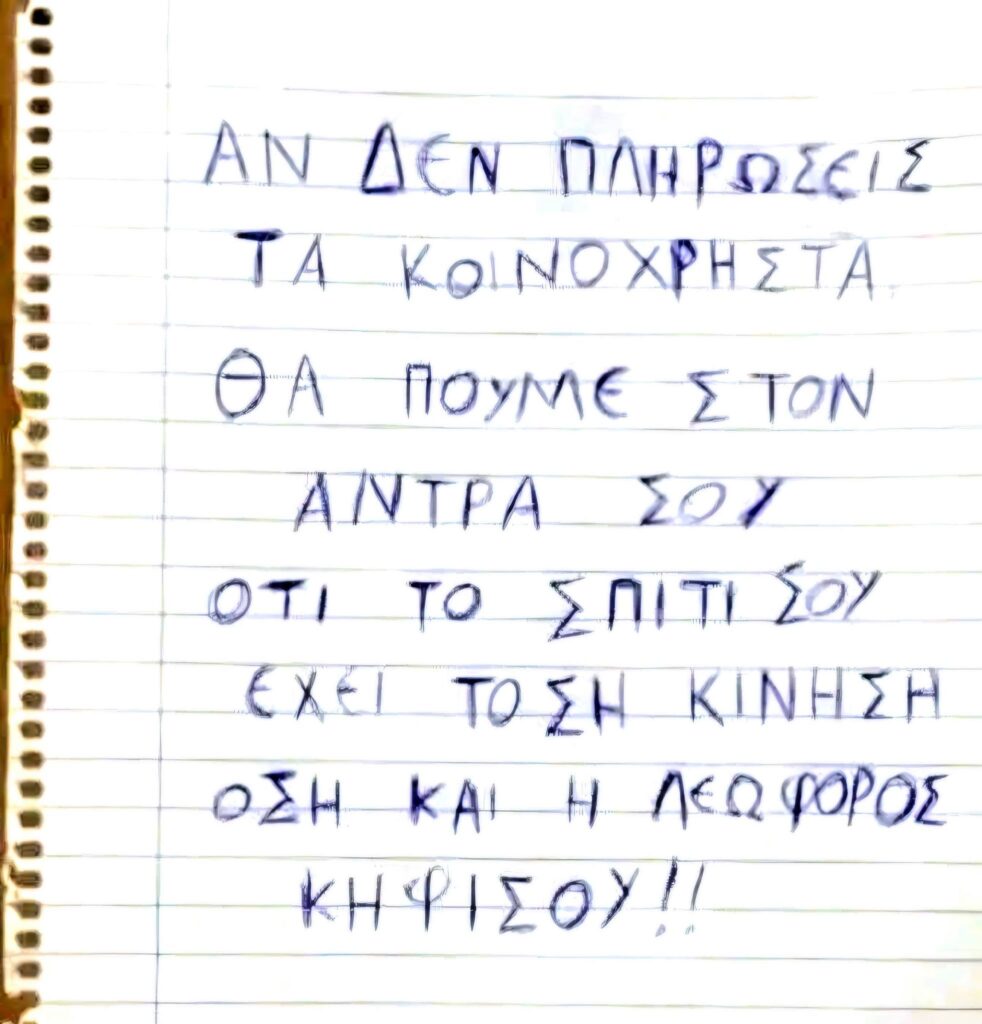 ΑΝ ΔΕΝ ΠΛΗΡΩΣΕΙΣ
ΤΑ ΚΟΙΝΟΧΡΗΣΤΑ
ΘΑ ΠΟΥΜΕ ΣΤΟΝ
ΑΝΤΡΑ ΣΟΥ
ΟΤΙ ΤΟ ΣΠΙΤΙ ΣΟΥ
ΕΧΕΙ ΤΟΣΗ ΚΙΝΗΣΗ
ΟΣΗ ΚΑΙ Η ΛΕΩΦΟΡΟΣ
ΚΗΦΙΣΟΥ!!